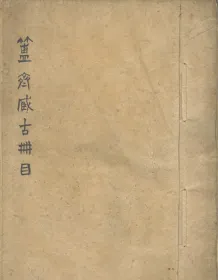 簠齋臧古冊目